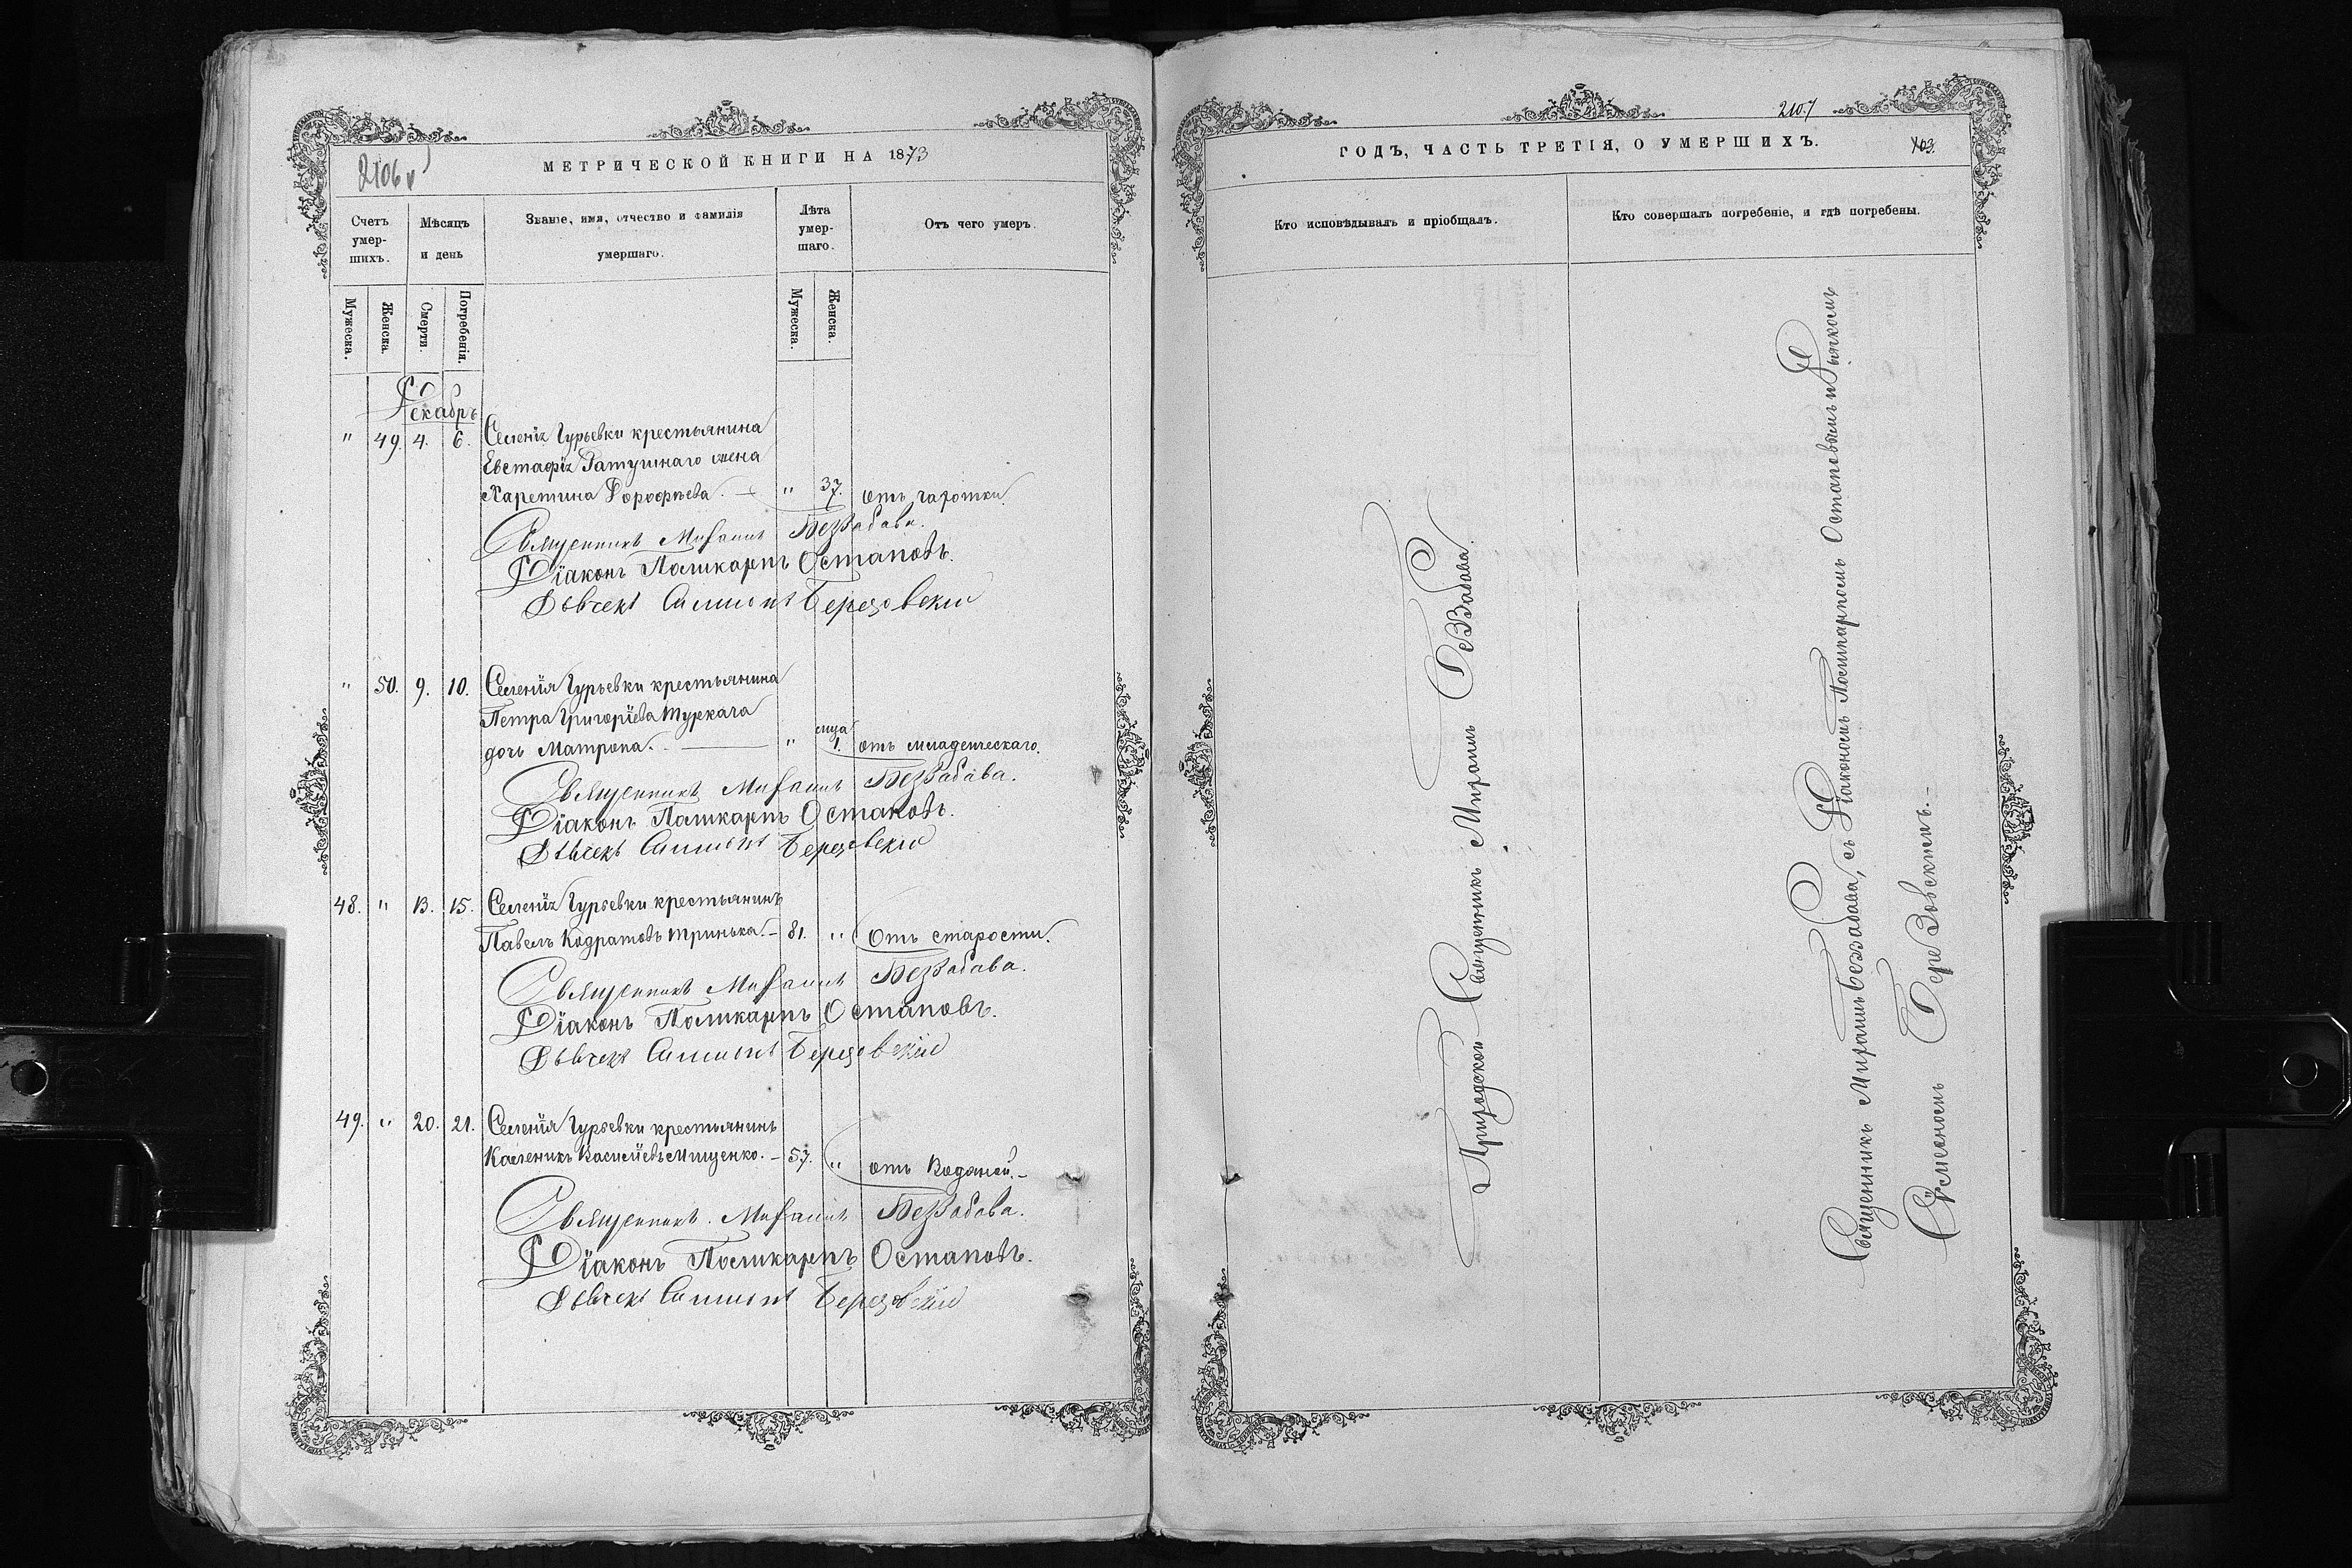 2106 v
МЕТРИЧЕСКОЙ КНИГИ НА 1873
Счетъ умер-шихъ.
Мѣсяцъ и день
Званіе, имя, отчество и фамилія умершаго.
Лѣта умер-шаго.
Отъ чего умеръ.
Мужеска.
Женска.
Смерти.
Погребенія.
Мужеска.
Женска.
Декабрь
" 49. 4. 6. Селенія Гурьевки крестьянина
Евстафія жена
Харетина Дорофѣева. — " 37. отъ
Священникъ Михаилъ Беззабава.
Діаконъ Поликарпъ Остаповъ.
Дьячекъ Симеонъ Березовскій
" 50. 9. 10. Селенія Гурьевки крестьянина
Петра Григоріева Туркача
дочь Матрона. — " 1. отъ младенческаго.
Священникъ Михаилъ Беззабава.
Діаконъ Поликарпъ Остаповъ.
Дьячекъ Симеонъ Березовскій
48. " 13. 15. Селенія Гурьевки крестьянинъ
Павелъ Кодратовъ Тринька. — 81. " Отъ старости.
Священникъ Михаилъ Беззабава.
Діаконъ Поликарпъ Остаповъ.
Дьячекъ Симеонъ Березовскій
49. " 20. 21. Селенія Гурьевки крестьянинъ
Калленикъ Василіевъ Мищенко. — 57. " отъ Водяной. —
Священникъ. Михаилъ Беззабава.
Діаконъ Поликарпъ Остаповъ.
Дьячекъ Симеонъ Березовскій
2107
ГОДЪ, ЧАСТЬ ТРЕТІЯ, О УМЕРШИХЪ.
703.
Кто исповѣдывалъ и пріобщалъ.
Кто совершалъ погребеніе, и гдѣ погребены.
Приходской Священникъ Михаилъ Беззабава.
Священникъ Михаилъ Беззабава, съ Діакономъ Поликарпомъ Остаповымъ и Дьячкомъ
Сѵмеономъ Березовскимъ. —